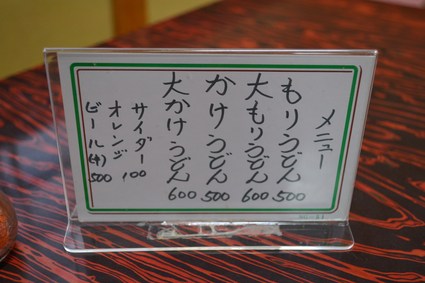 メニュー
もりうどん 500
大もりうどん 600
かけうどん 500
大かけうどん 600
サイダー 100
オレンジ
ビール(中) 500